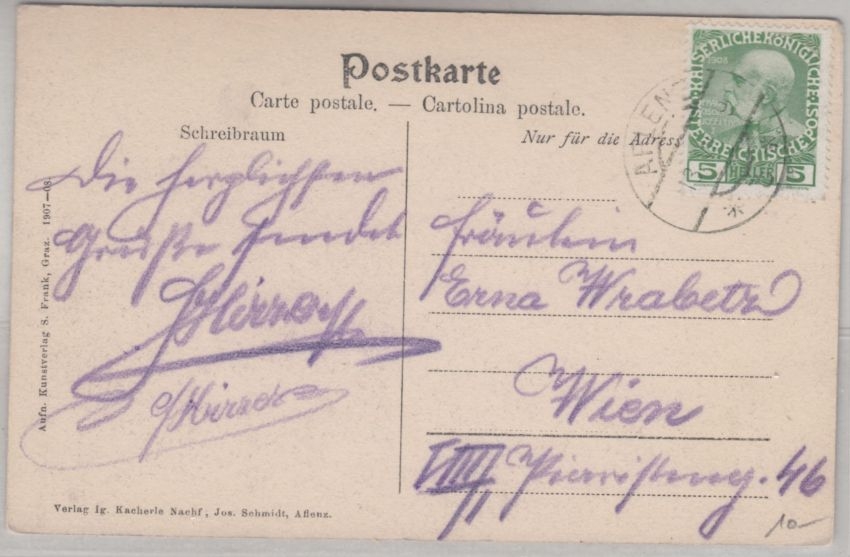 Postkarte
Carte postale. — Cartolina postale.
Schreibraum
Nur für die Adresse
KAISERLICHE KÖNIGLICHE
ÖSTERREICHISCHE POST
1908
5 HELLER 5
AFLENZ
Die herzlichsten
Grüße sendet
Fräulein
Erna Wrabetz
Wien
VIII, Piaristeng. 46
Aufn. Kunstverlag S. Frank, Graz. 1907—08.
Verlag Ig. Kacherle Nachf., Jos. Schmidt, Aflenz.
10-